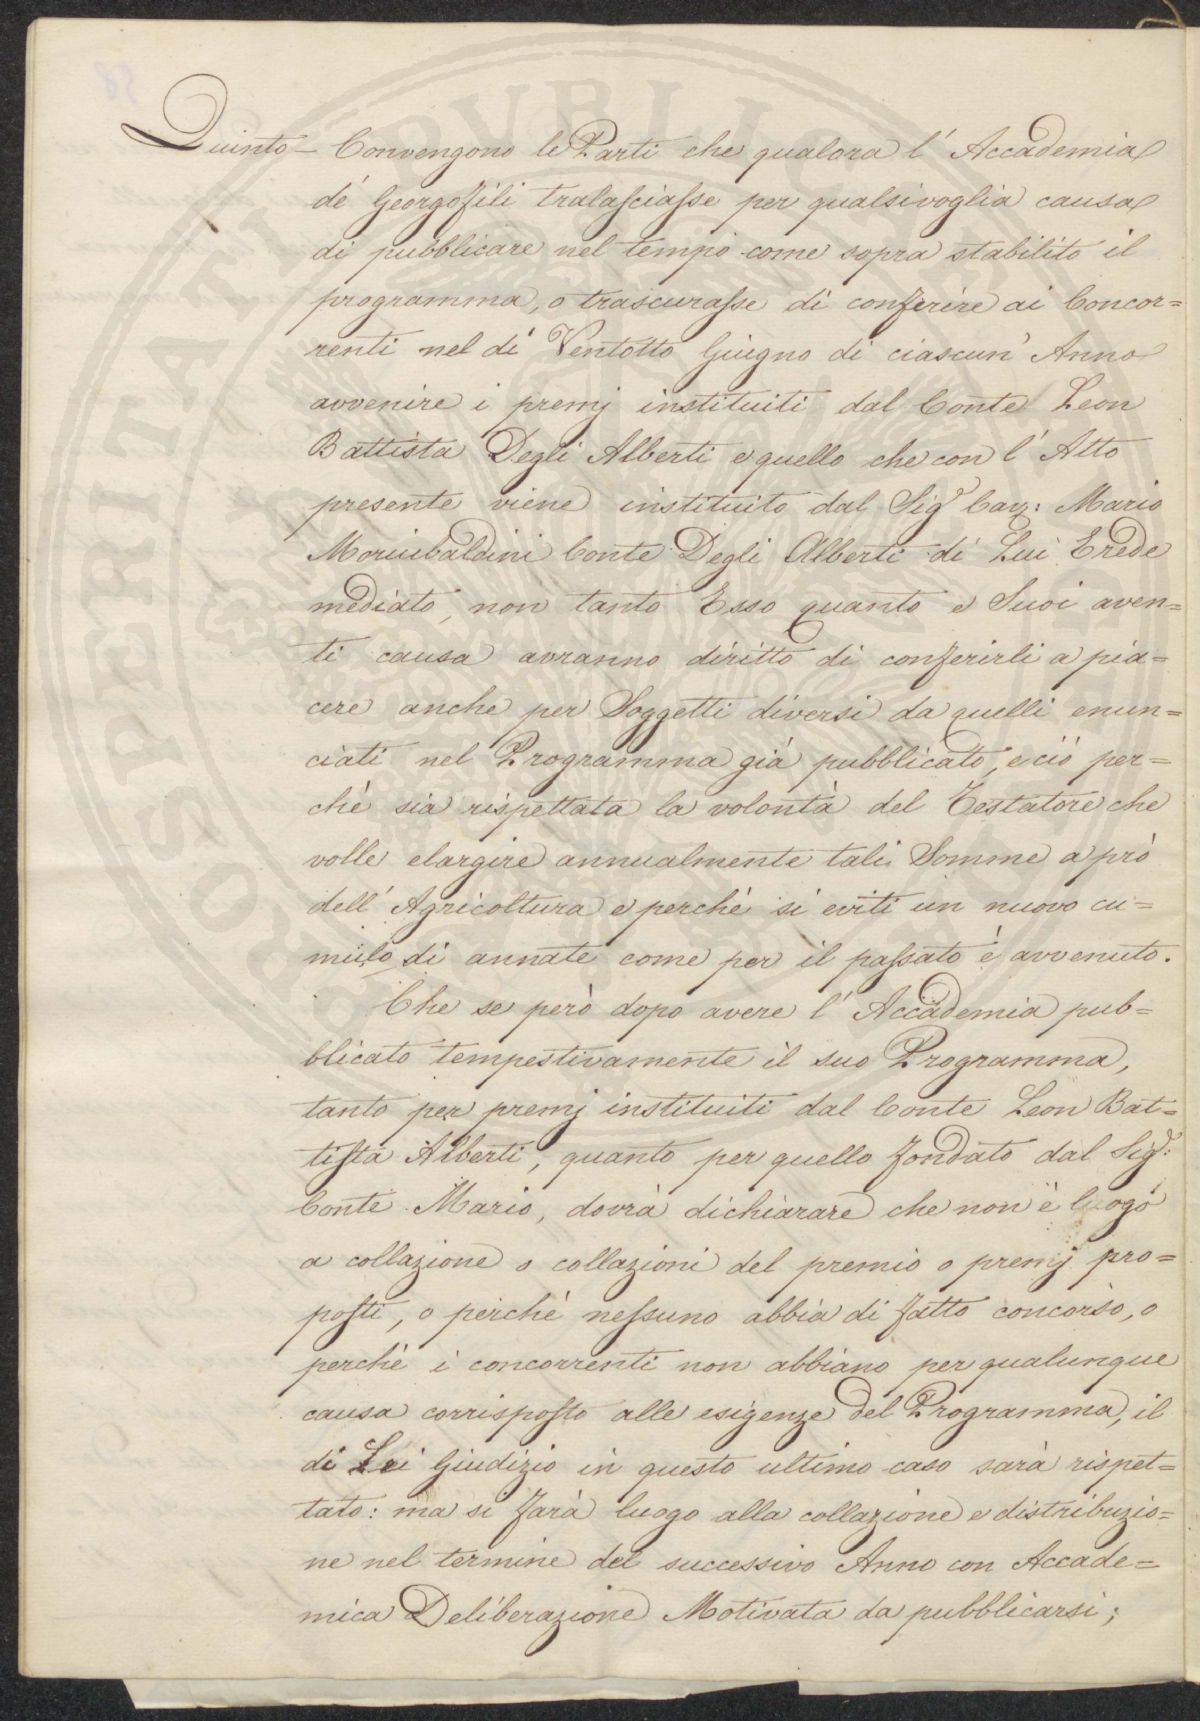 Quinto — Convengono le Parti che qualora l' Accademia
de' Georgofili tralasciasse per qualsivoglia causa
di pubblicare nel tempo come sopra stabilito il
programma, o trascurasse di conferire ai Concor=
renti nel dì Ventotto Giugno di ciascun' Anno
avvenire i premj instituiti dal Conte Leon
Battista Degli Alberti e quello che con l' Atto
presente viene instituito dal Sig.r Cav: Mario
Moriubaldini Conte Degli Alberti di Lui Erede
mediato, non tanto Esso quanto e Suoi aven=
ti causa avranno diritto di conferirli a pia=
cere anche per Soggetti diversi da quelli enun=
ciati nel Programma già pubblicato, e ciò per=
chè sia rispettata la volontà del Testatore che
volle elargire annualmente tali Somme a prò
dell' Agricoltura e perchè si eviti un nuovo cu=
mulo di annate come per il passato è avvenuto.
Che se però dopo avere l' Accademia pub=
blicato tempestivamente il suo Programma,
tanto per premj instituiti dal Conte Leon Bat=
tista Alberti, quanto per quello fondato dal Sig.r:
Conte Mario, dovrà dichiarare che non è luogo
a collazione o collazioni del premio o premj pro=
posti, o perchè nessuno abbia di fatto concorso, o
perchè i concorrenti non abbiano per qualunque
causa corrisposto alle esigenze del Programma, il
di Lei Giudizio in questo ultimo caso sarà rispet=
tato: ma si farà luogo alla collazione e distribuzio=
ne nel termine del successivo Anno con Accade=
mica Deliberazione Motivata da pubblicarsi;
PUBLICAE
PROSPERITATI